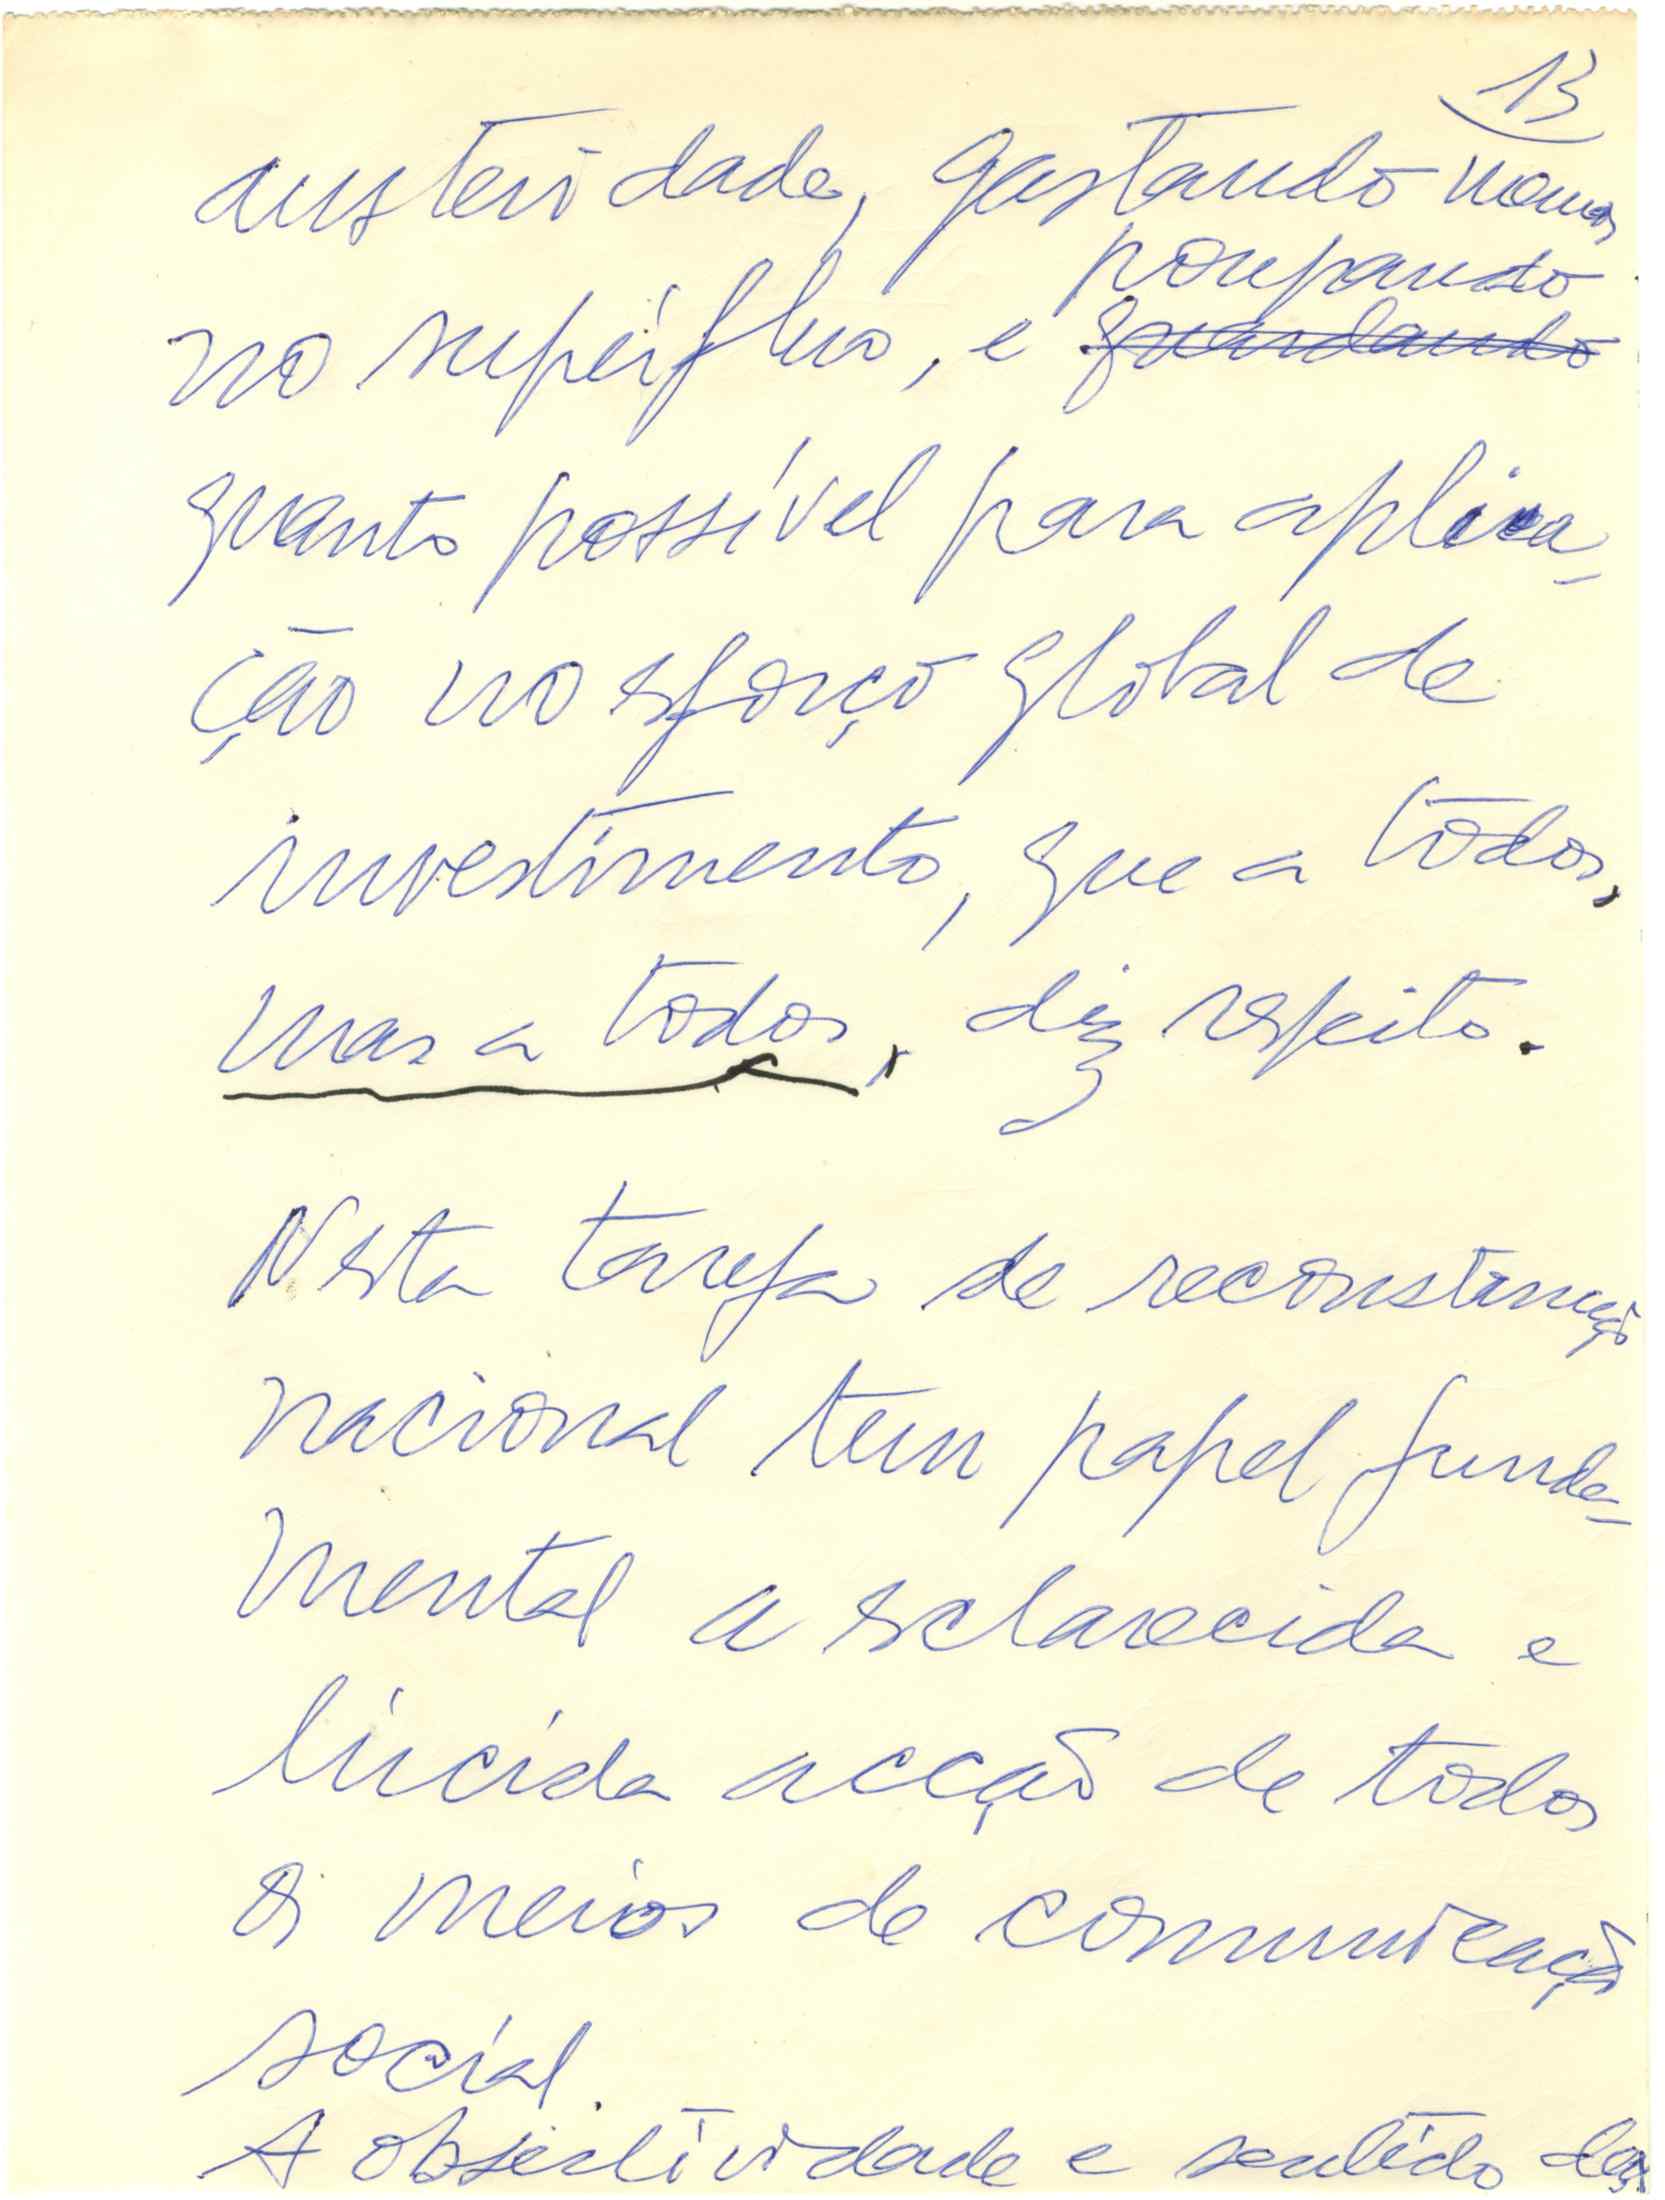 13
austeridade, gastando menos
poupando
no supérfluo, e guardando
quanto possível para aplica-
ção no esforço global de
investimento, que a todos,
mas a todos, diz respeito.
Nesta tarefa de reconstrução
nacional tem papel funda-
mental a esclarecida e
lúcida acção de todos
os meios de comunicação
social.
A objectividade e sentido